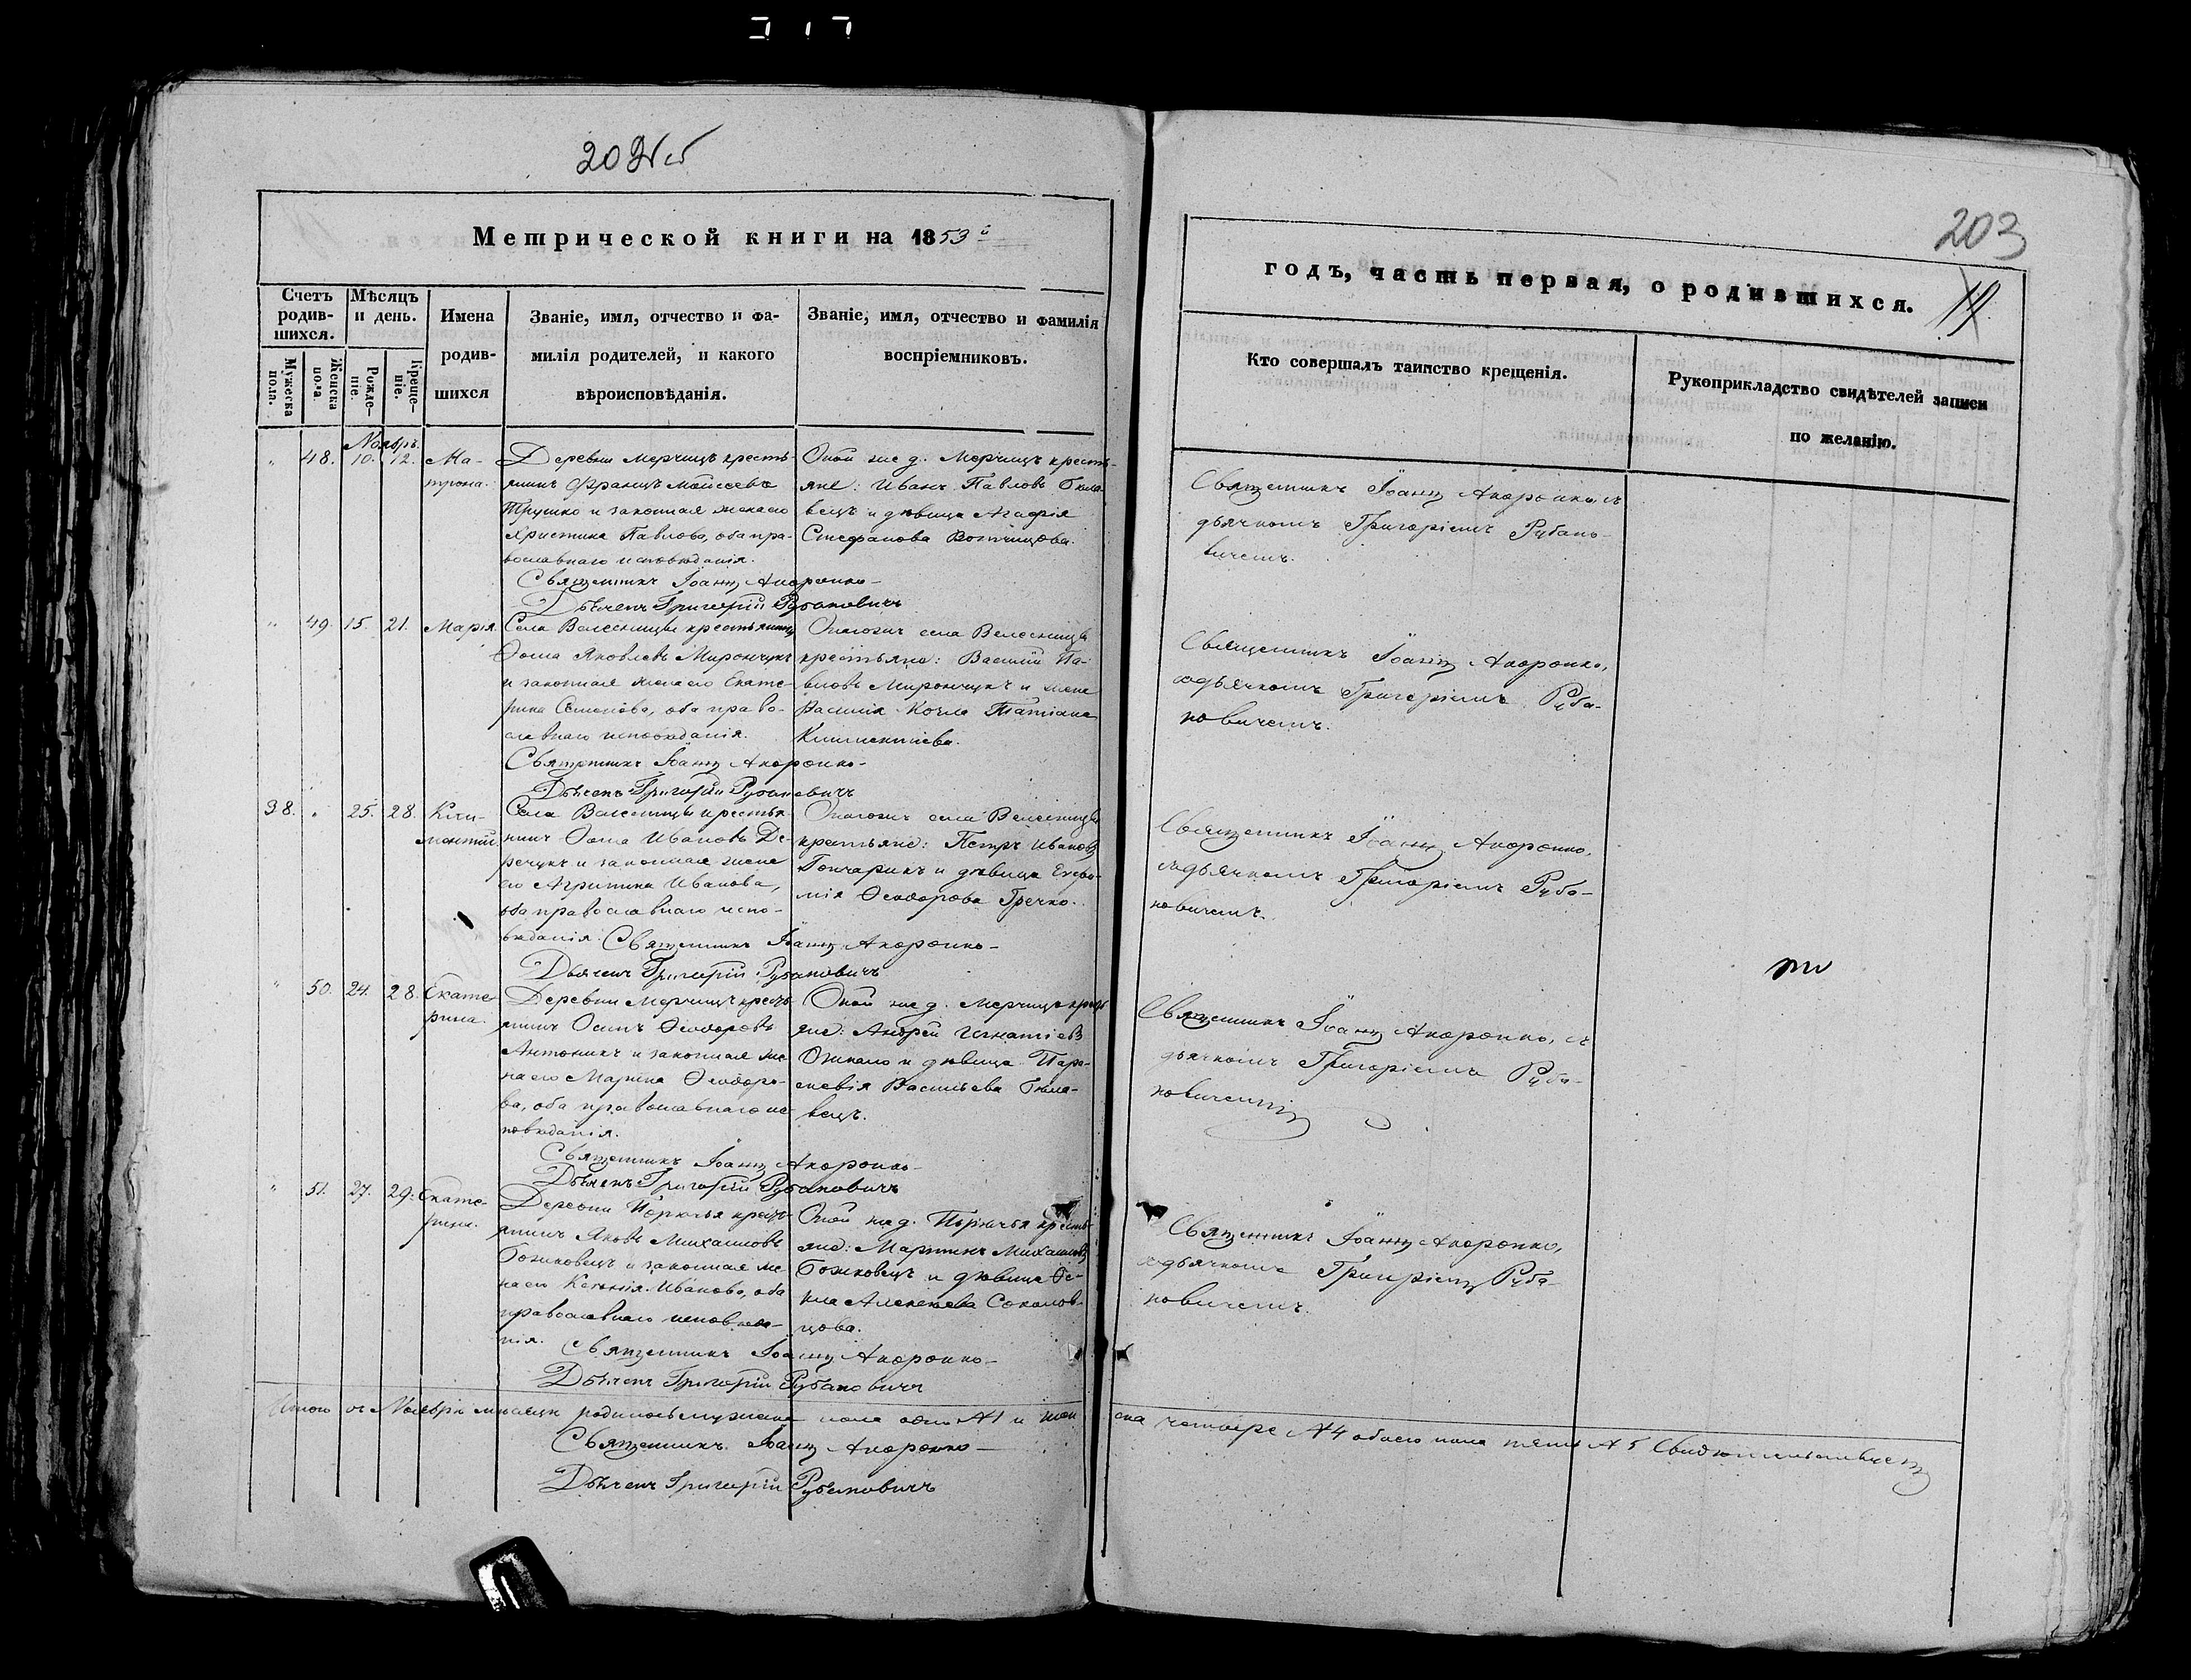 203
Метрической книги на 1853й
годъ, часть первая, о родившихся.
19.
Счетъ родив-шихся.
Мѣсяцъ и день.
Мужеска пола.
Женска пола.
Рожде-ніе.
Креще-ніе.
Имена
родив-
шихся
Званіе, имя, отчество и фа-
милія родителей, и какого
вѣроисповѣданія.
Званіе, имя, отчество и фамилія
воспріемниковъ.
Кто совершалъ таинство крещенія.
Рукоприкладство свидѣтелей записи
по желанію.
Ноябрь.
" 48. 10. 12. Ма-
трона.
Деревни Мерчицъ кресть-
янинъ Францъ Моисеевъ
Трушко и законная жена его
Христина Павлова, оба пра-
вославнаго исповѣданія.
Священникъ Іоаннъ Акоронко
Дьячекъ Григорій Рубановичъ
Оной же д. Мерчицъ кресть-
яне: Иванъ Павловъ
и дѣвица Агафія
Стефанова
Священникъ Іоаннъ Акоронко, съ
дьячкомъ Григоріемъ Рубано-
вичемъ.
" 49. 15. 21. Марія.
Села Велесницы крестьянинъ
Ѳома Яковлевъ Мирончукъ
и законная жена его Екате-
рина Семенова, оба право-
славнаго исповѣданія.
Священникъ Іоаннъ Акоронко
Дьячекъ Григорій Рубановичъ
Тогожъ села Велесницы
крестьяне: Василій Па-
вловъ Мирончукъ и жена
Василія Татіана
Климентіева.
Священникъ Іоаннъ Акоронко,
съ дьячкомъ Григоріемъ Руба-
новичемъ.
38. " 25. 28. Кли-
ментій.
Села Велесницы крестья-
нинъ Ѳома Ивановъ Де-
речукъ и законная жена
его Агрипина Иванова,
оба православнаго испо-
вѣданія. Священникъ Іоаннъ Акоронко
Дьячекъ Григорій Рубановичъ
Тогожъ села Велесницы
крестьяне: Петръ Ивановъ
Гончарикъ и дѣвица Евфи-
мія Ѳеодорова Гречко.
Священникъ Іоаннъ Акоронко,
съ дьячкомъ Григоріемъ Руба-
новичемъ.
" 50. 24. 28. Екате-
рина.
Деревни Мерчицъ кресть-
янинъ Осипъ Ѳеодоровъ
Антоникъ и законная же-
на его Марина Ѳеодоро-
ва, оба православнаго ис-
повѣданія.
Священникъ Іоаннъ Акоронко
Дьячекъ Григорій Рубановичъ
Оной же д. Мерчицъ кресть-
яне: Андрей Игнатіевъ
и дѣвица Пара-
скевія Васильева
Священникъ Іоаннъ Акоронко, съ
дьячкомъ Григоріемъ Руба-
новичемъ
" 51. 27. 29. Екате-
рина.
Деревни кресть-
янинъ Яковъ Михайловъ
Божковецъ и законная же-
на его Ксенія Иванова, оба
православнаго исповѣда-
нія. Священникъ Іоаннъ Акоронко
Дьячекъ Григорій Рубановичъ
Оной же д. кресть-
яне: Мартинъ Михайловъ
Божковецъ и дѣвица Ѳе-
кла Алексѣева
Священникъ Іоаннъ Акоронко,
съ дьячкомъ Григоріемъ Руба-
новичемъ.
Итого въ Ноябрѣ мѣсяцѣ родилось мужеска пола одно №1 и жен ска четыре №4 обоего пола пять №5 Свидѣтельствуемъ
Священникъ Іоаннъ Акоронко
Дьячекъ Григорій Рубановичъ